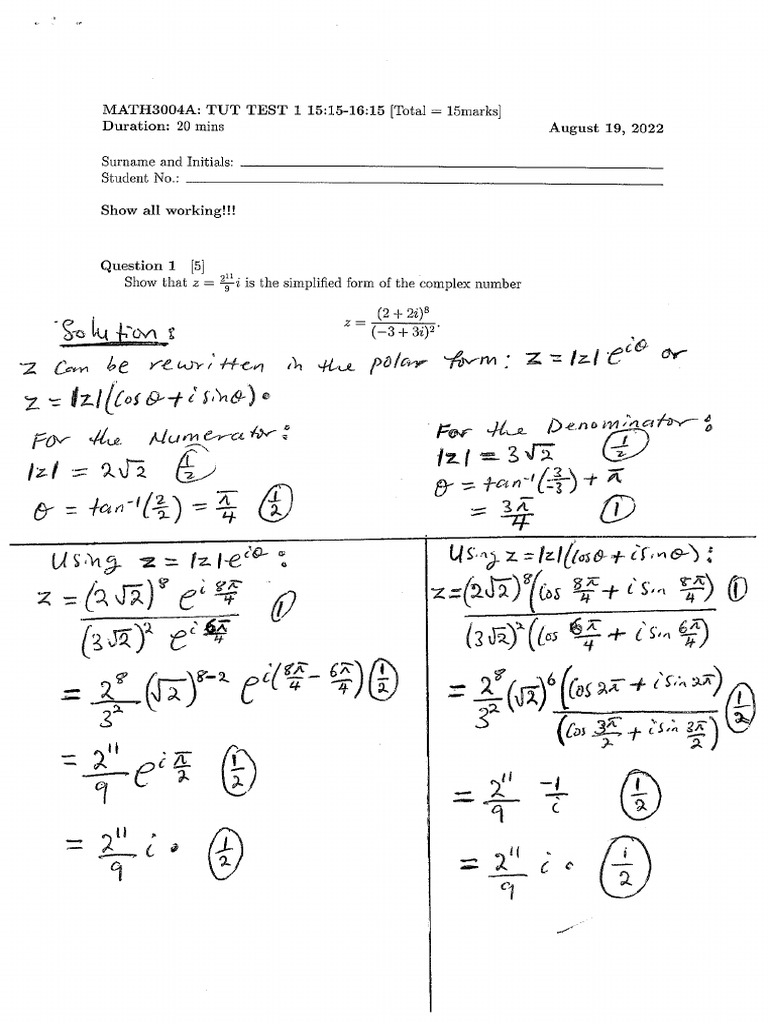 MATH3004A: TUT TEST 1 15:15-16:15 [Total = 15marks]
Duration: 20 mins August 19, 2022
Surname and Initials:
Student No.:
Show all working!!!
Question 1 [5]
Show that z = 2^11/9 i is the simplified form of the complex number
z = (2 + 2i)^8 / (−3 + 3i)^2.
Solution:
z can be rewritten in the polar form: z = |z| e^{iθ} or
z = |z|(cosθ + i sinθ).
For the Numerator:
|z| = 2√2 (1/2)
θ = tan^-1(2/2) = π/4 (1/2)
For the Denominator:
|z| = 3√2 (1/2)
θ = tan^-1(3/-3) + π
= 3π/4 (1)
Using z = |z|e^{iθ}:
z = (2√2)^8 e^{i 8π/4} / (3√2)^2 e^{i 6π/4} (1)
= 2^8/3^2 (√2)^{8-2} e^{i(8π/4 - 6π/4)} (1/2)
= 2^11/9 e^{i π/2} (1/2)
= 2^11/9 i. (1/2)
Using z = |z|(cosθ + i sinθ):
z = (2√2)^8 (cos 8π/4 + i sin 8π/4) / (3√2)^2 (cos 6π/4 + i sin 6π/4) (1)
= 2^8/3^2 (√2)^6 (cos 2π + i sin 2π) / (cos 3π/2 + i sin 3π/2) (1/2)
= 2^11/9 -1/i (1/2)
= 2^11/9 i. (1/2)